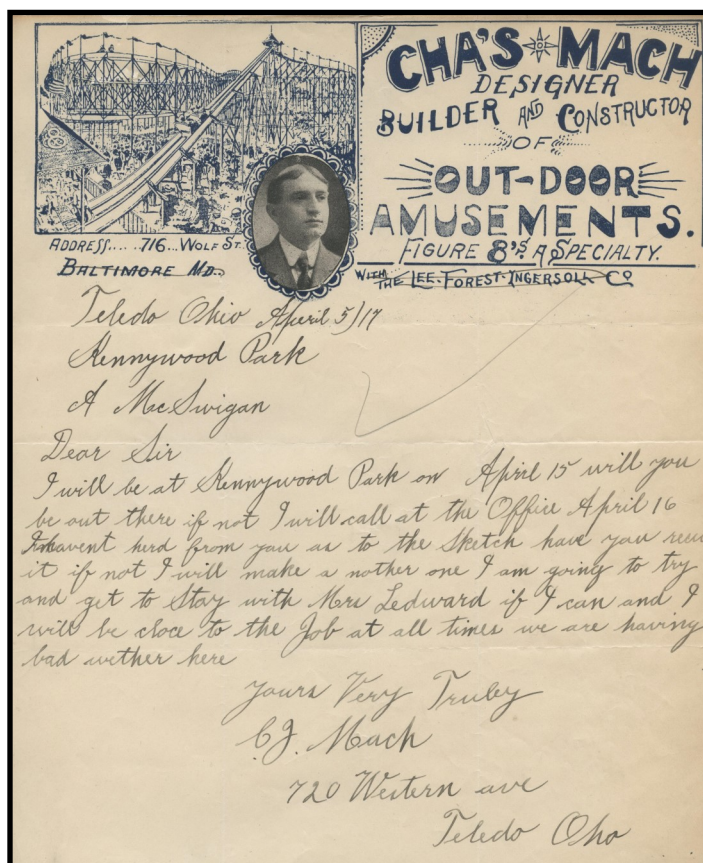 CHA'S MACH
DESIGNER
BUILDER AND CONSTRUCTOR
OF
OUT-DOOR
AMUSEMENTS.
FIGURE 8'S A SPECIALTY.
WITH THE LEE-FOREST-INGERSOLL CO
ADDRESS..... 716...WOLF ST.
BALTIMORE MD.
Toledo Ohio April 5/17
Kennywood Park
A MacSwigan
Dear Sir
I will be at Kennywood Park on April 15 will you
be out there if not I will call at the Office April 16
I havent herd from you as to the Sketch have you
it if not I will make a nother one I am going to try
and get to Stay with Mrs Ledward if I can and I
will be cloce to the Job at all times we are having
bad wether here
Yours Very Truley
C.J. Mach
720 Western ave
Toledo Oho